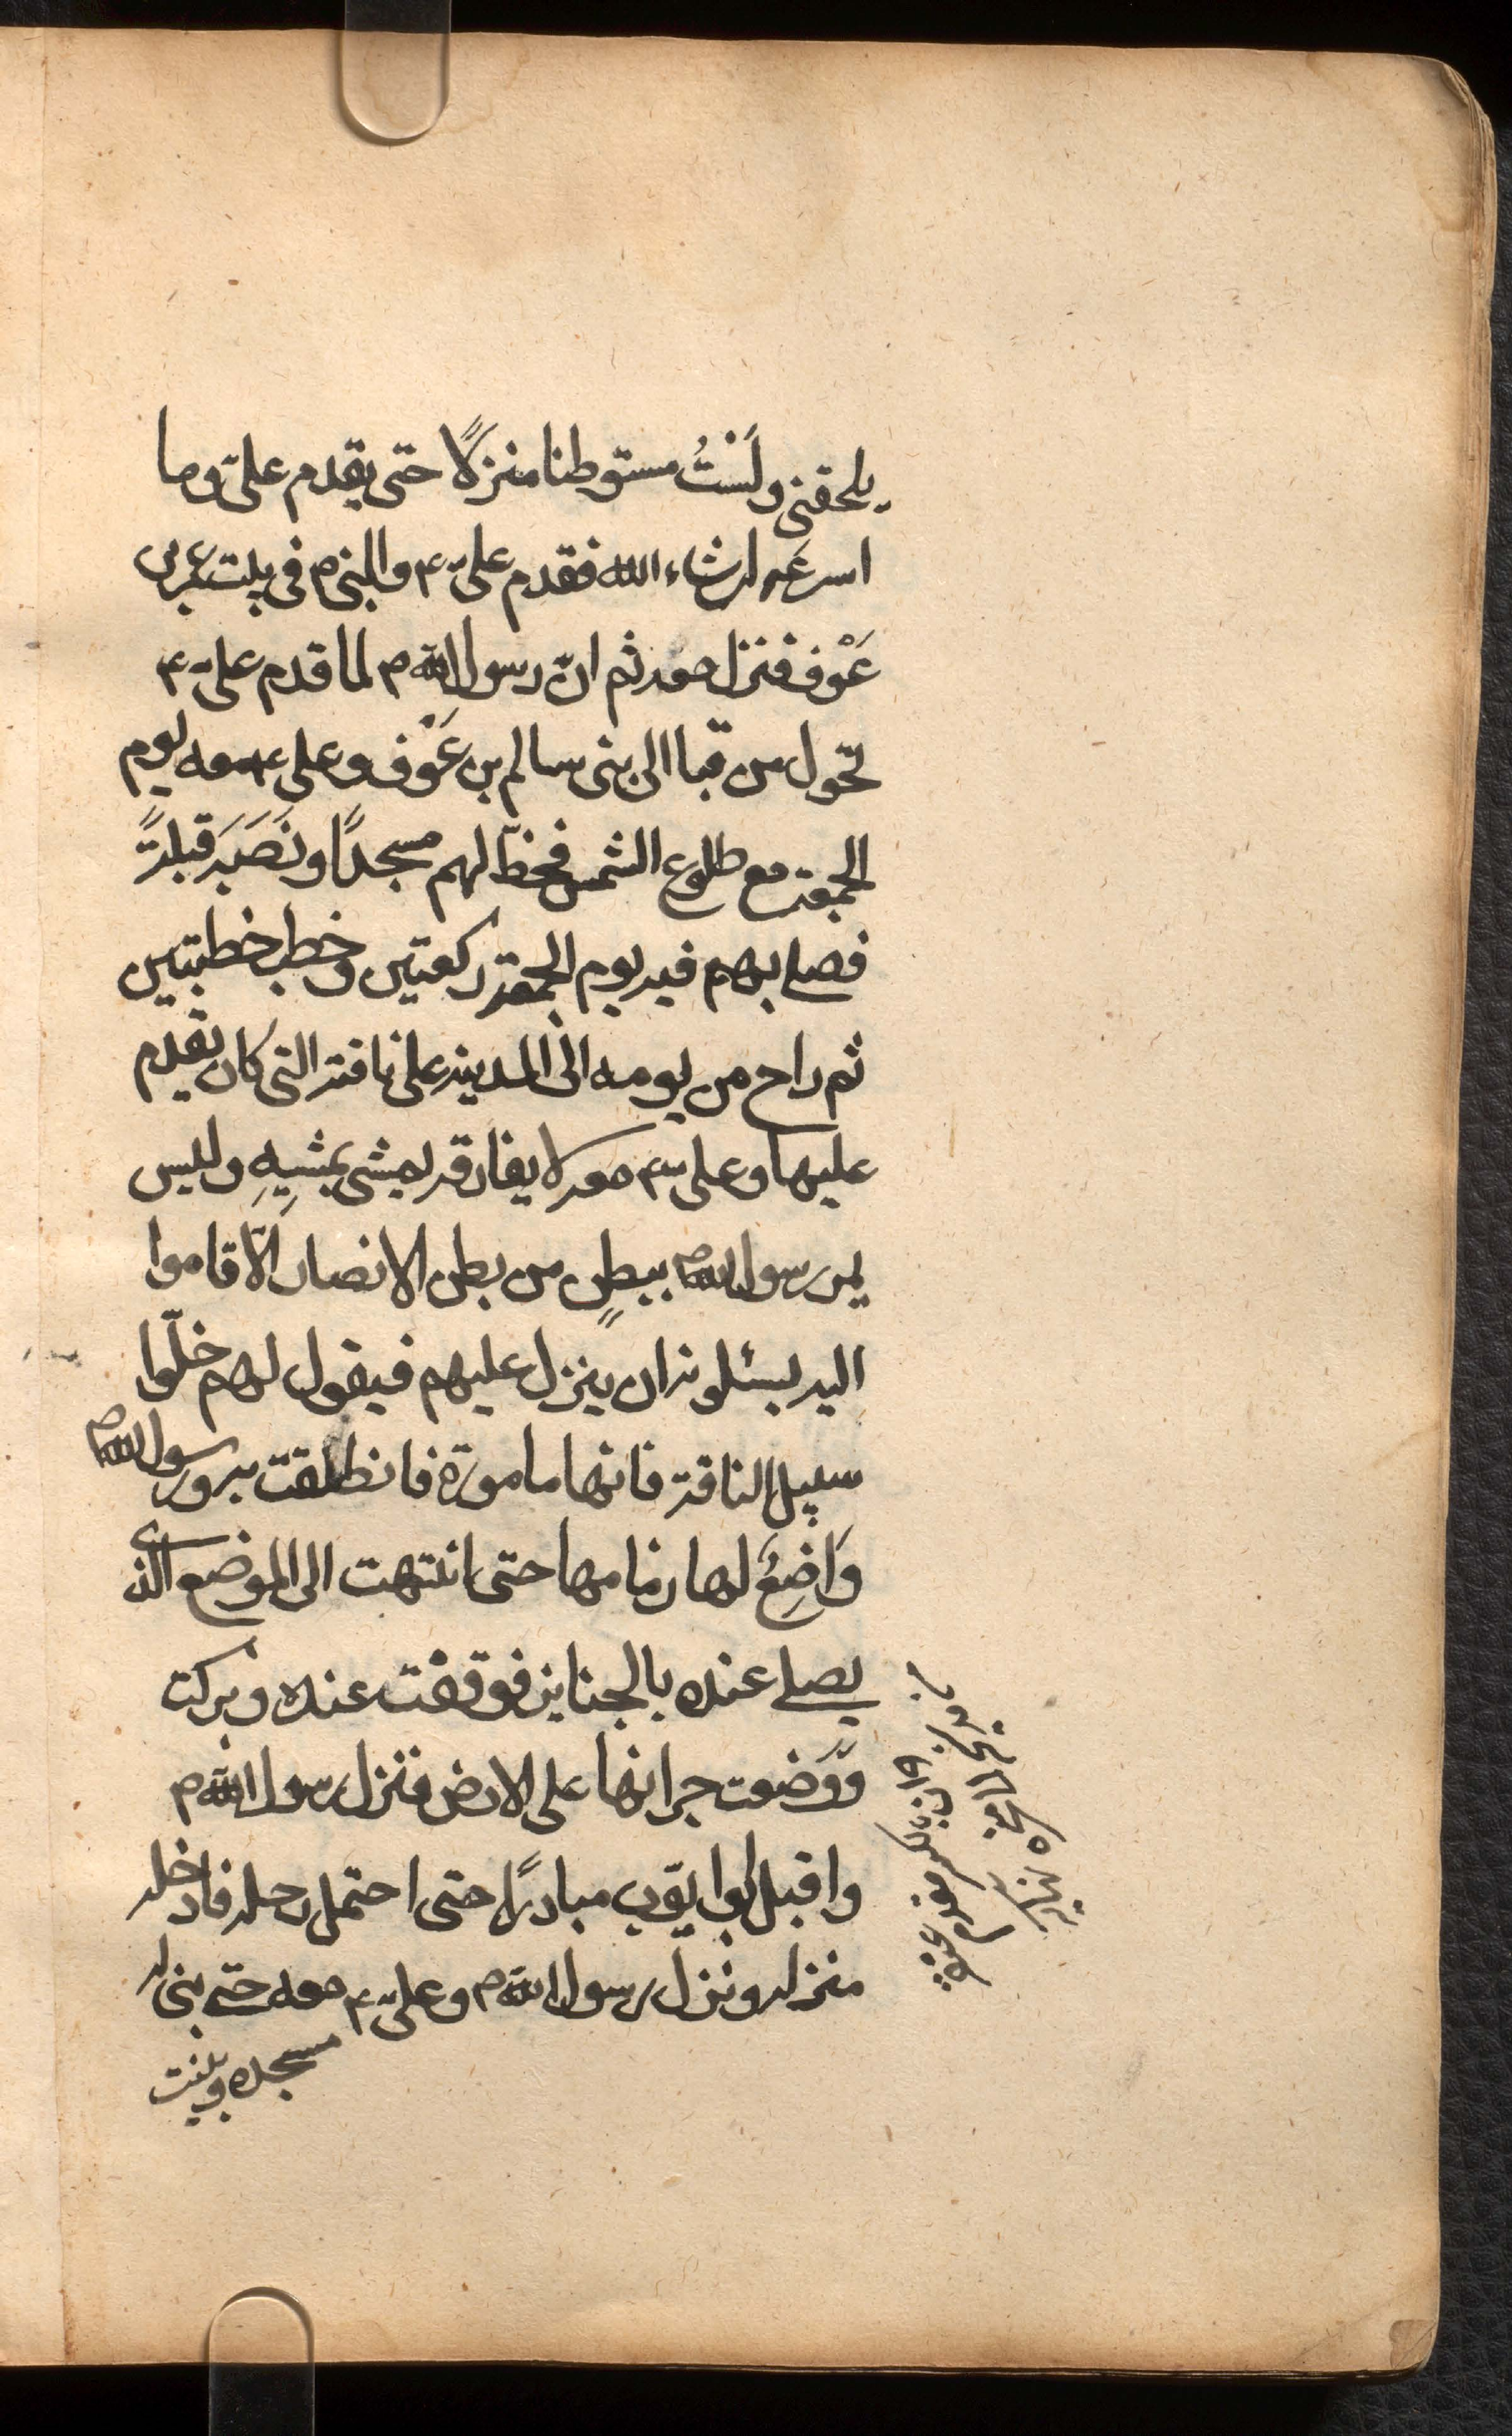 يلحقنى ولَسْتُ مستوطنا منزلًا حتى يقدم علىّ وما
اسرعَه انشاء الله فقدم علىّ ع والنبى ص فى بيت عمرو بن
عَوْف فنزل معه ثم انّ رسول الله ص لما قدم علىّ ع
تحول من قبا الى بنى سالم بن عَوْف وعلى ع معه يوم
الجمعة مع طلوع الشمس فخطّ لهم مسجدًا ونَصَبَ قبلتهً
فصلى بهم فيه يوم الجمعة ركعتين وخطب خطبتين
ثم راح من يومه الى المدينة على ناقته التى كان يقدم
عليها وعلى ع معه لا يفارقه يمشى بمشيِهِ وليس
يمر رسول الله ص ببطنٍ من بطن الانصار الّا قاموا
اليه يسئلونه ان ينزل عليهم فيقول لهم خلّوا
سبيل الناقة فانها مامورة فانطلقت به ورسول الله ص
وَاضِعٌ لها زمامها حتى انتهت الى الموضع الذى
يصلى عنده بالجنايز فوقفت عنده وبركت
وَوَضعت جرانها على الارض فنزل رسول الله ص
واقبل ابوايّوب مبادرًا حتى احتمل رحله فادخله
منزله ونزل رسول الله ص وعلىّ ع معه حتى بنى له
مسجده وبنيت